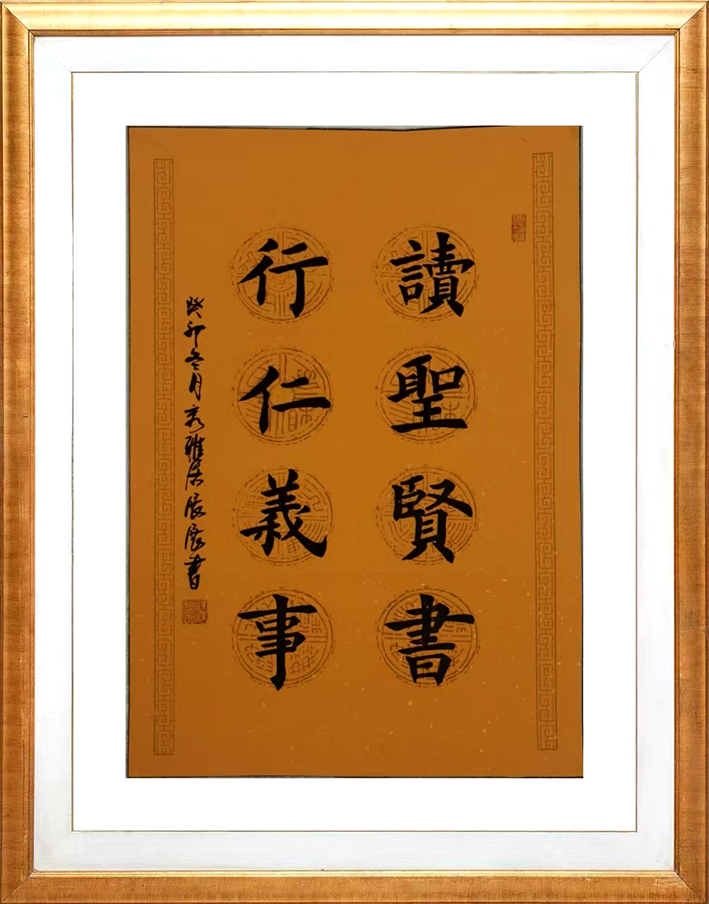 讀聖賢書
行仁義事
癸卯冬月秀雅居展展書